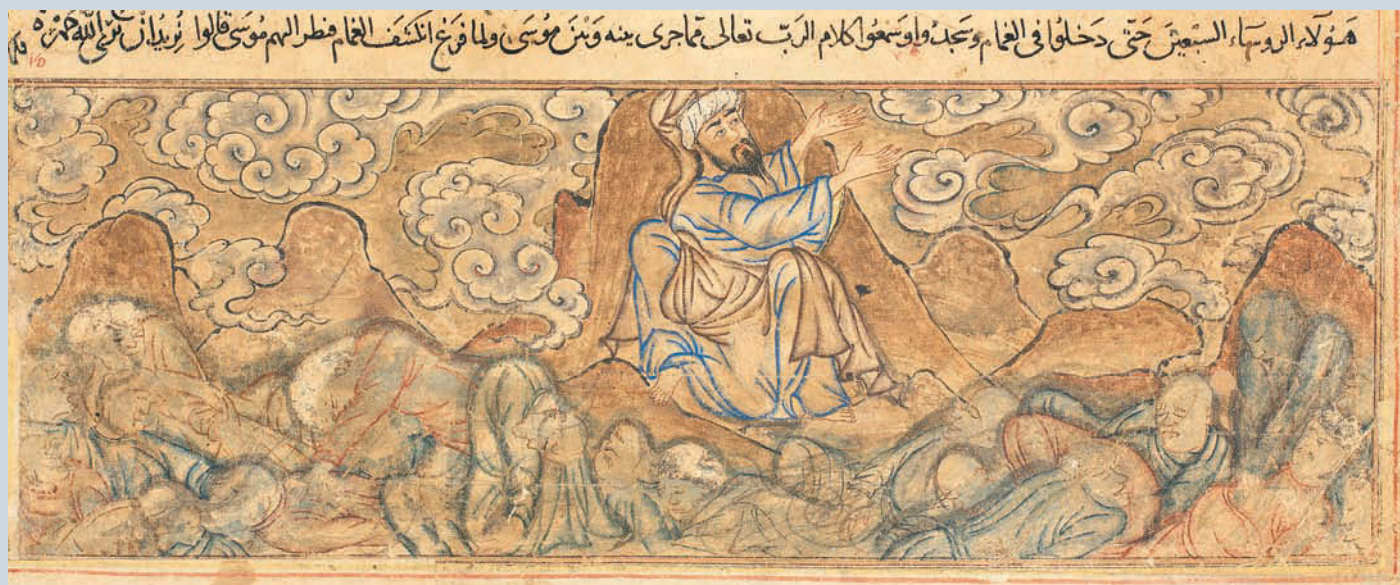 هولاء الروساء السبعين حتى دخلوا فى الغمام وسجدوا وسمعوا كلام الرب تعالى فما جرى بينه وبين موسى ولما فرغ انكشف الغمام فطر الهم موسى قالوا نريد ان نرى الله جهره